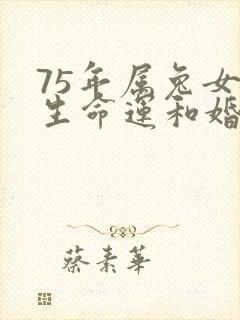 75年属兔女
生命运和婚
蔡素華